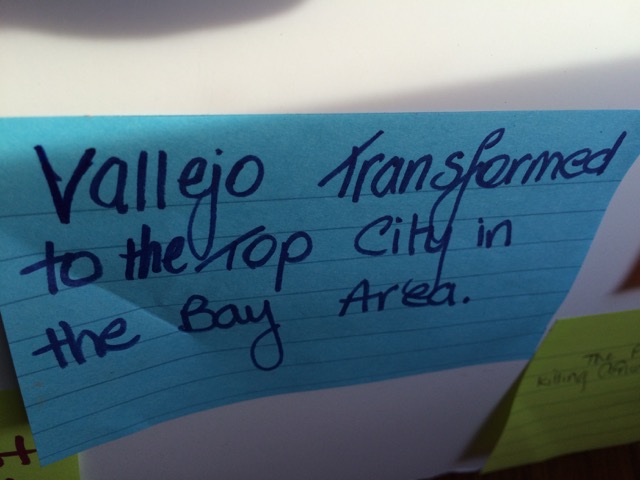 Vallejo Transformed
to the Top City in
the Bay Area.
The
Killing